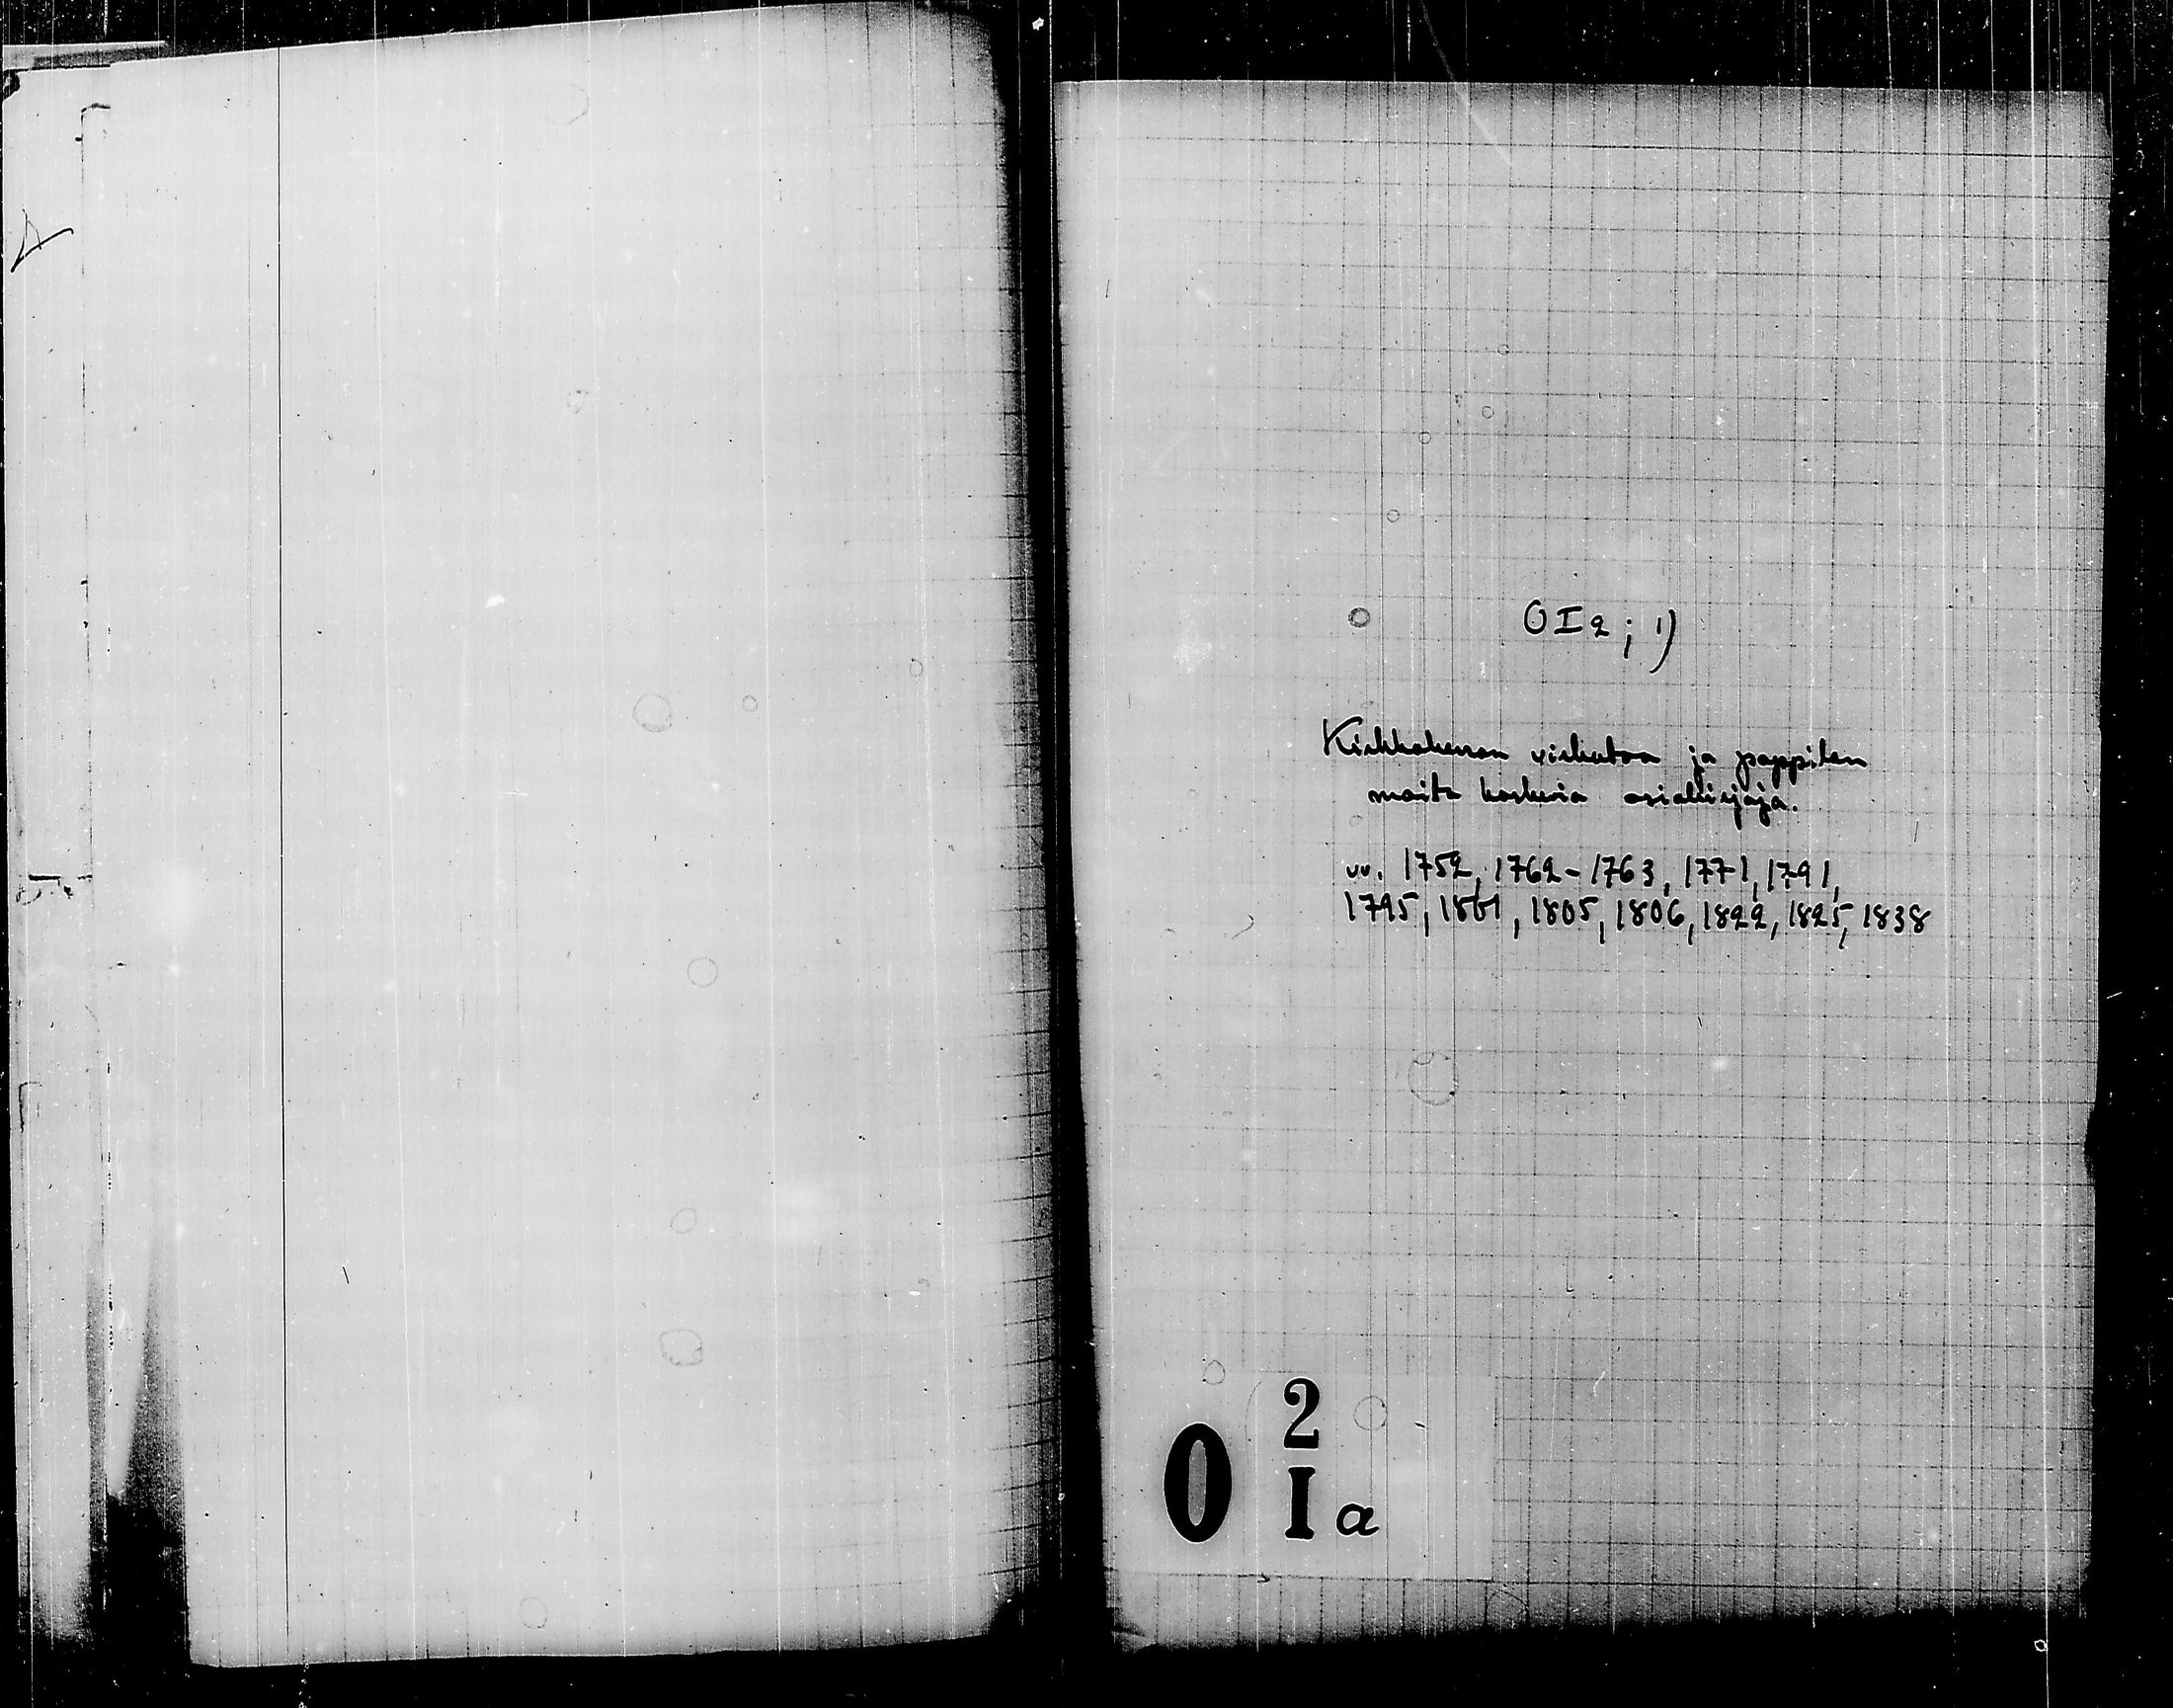 OI2; 1)
Kirkkoherran virkataloa ja pappilan
maita koskevia asiakirjoja.
vv. 1752, 1762-1763, 1771, 1791,
1795, 1801, 1805, 1806, 1822, 1825, 1838
2
O I a